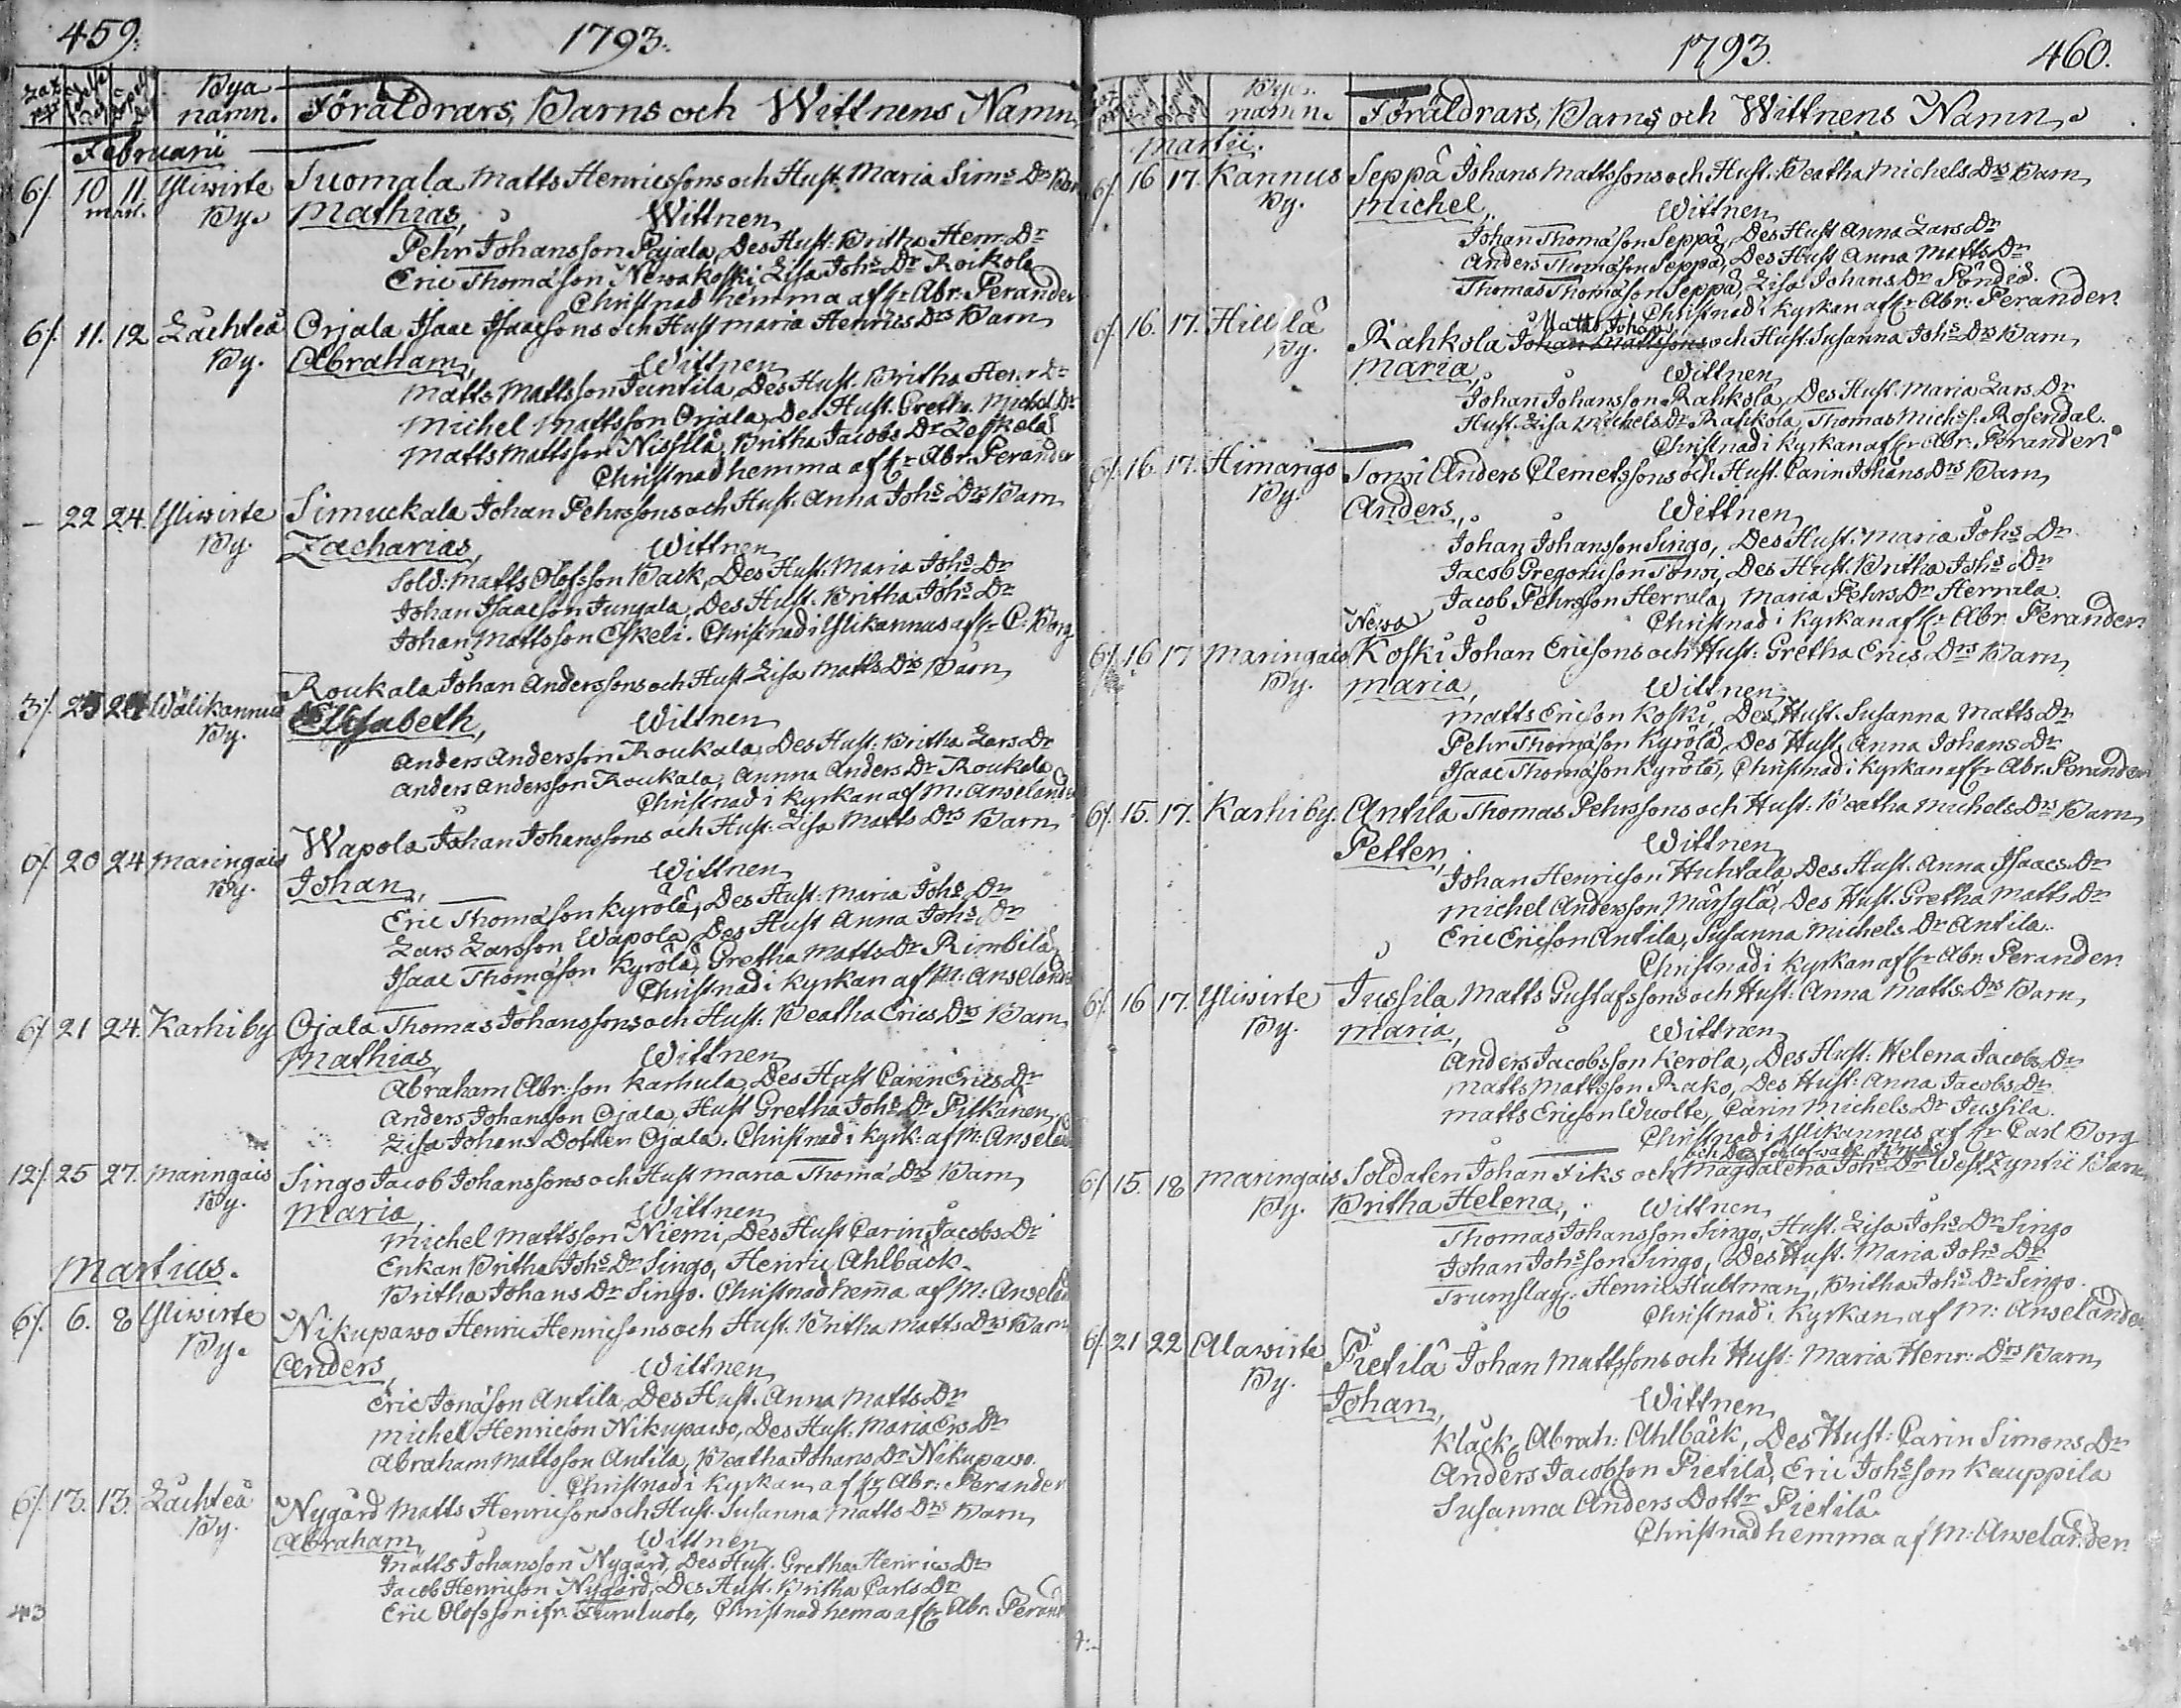 459.
1793.
Bya
namn.
Föräldrars, Barns och Wittnens Namn
Februarii
6/. 10 11. Yliwirte Suomala Matts Henricssons och Hust. Maria Sims Drs Barn
mart. By. Mathias, Wittnen
Pehr Johansson Pajala, Des Hust: Britha Henr. Dr
Eric Thomæson Newakoski, Lisa Johs Dr Roukola
Christnad hemma af Hr Abr: Perander
6/. 11. 12 Låchteå Orjala Isaac Isaacsons och Hust Maria Henrics Drs Barn
By. Abraham, Wittnen
Matts Mattsson Juntila, Des Hust. Britha Henr Dr
Michel Mattsson Orjala, Des Hust. Greta. Michel Dr
Matts Mattsson Nissilä, Britha Jacobs Dr Leskelä
Christnad hemma af Hr Abr. Perander
– 22 24. Yliwirte Simuckala Johan Pehrssons och Hust. Anna Johs Drs Barn
By. Zacharias, Wittnen
Sold: Matts Olofsson Back, Des Hust: Maria Johs Dr
Johan Isaacson Jungala, Des Hust. Britha Johs Dr
Johan Mattsson Eskeli. Christnad i Ylikannus af Hr C. Borg
Roukala Johan Anderssons och Hust Lisa Matts Drs Barn
3/. 23 24 Wälikannus Elisabeth, Wittnen
By.
Anders Andersson Roukala, Des Hust: Britha Lars Dr
Anders Andersson Roukala, Annna Anders Dr Roukala
Christnad i Kyrkan af M: Anselander
Wapola Johan Johanssons och Hust: Lisa Matts Drs Barn
6/. 20 24 Maringais Johan, Wittnen
By.
Eric Thomæson Kyrölä, Des Hust: Maria Johs Dr
Lars Larsson Wapola, Des Hust Anna Johs Dr
Isaac Thomæson Kyrölä, Gretha Matts Dr Rimbilä
Christnad i Kyrkan af M: Anselander
6/. 21 24. Karhi by Ojala Thomas Johanssons och Hust: Beatha Erics Drs Barn
Mathias, Wittnen
Abraham Abr:son Karhula, Des Hust Carin Erics Dr
Anders Johansson Ojala, Hust Gretha Johs Dr Pitkänen,
Lisa Johans Dotter Ojala. Christnad i Kyrk: af M: Anselan
12/. 25 27. Maringais Singo Jacob Johanssons och Hust Maria Thomæ Drs Barn
By. Maria, Wittnen
Michel Mattsson Niemi, Des Hust Carin Jacobs Dr
Enkan Britha Johs Dr Singo, Henric Ahlbäck.
Britha Johans Dr Singo. Christnad hem̃a af M: Anselan
Martius.
6/. 6. 8 Yliwirte Nikupawo Henric Henricsons och Hust. Britha Matts Drs Barn
By. Anders, Wittnen
Eric Jonæson Antila, Des Hust. Anna Matts Dr
Michel Henricson Nikupawo, Des Hust: Maria Ers Dr
Abraham Mattsson Antila, Beatha Johans Dr Nikupawo.
Christnad i Kyrkan af Hr Abr: Perander
6/. 13. 13. Låchteå Nygård Matts Henricsons och Hust. Susanna Matts Drs Barn
By. Abraham, Wittnen
Matts Johansson Nygård, Des Hust. Gretha Henrics Dr
Jacob Henricson Nygård, Des Hust. Britha Carls Dr
Eric Olofsson ifr. Furuluoto, Christnad hem̃a af Hr Abr. Perand
1793.
460.
Bya
namn.
Föräldrars, Barns och Wittnens Namn
Martii.
6/. 16 17. Kannus Seppä Johans Mattssons och Hust. Beatha Michels Drs Barn
By. Michel, Wittnen
Johan Thomæson Seppä, Des Hust Anna Lars Dr
Anders Thomæson Seppä, Des Hust Anna Matts Dr
Thomas Thomæson Seppä, Lisa Johans Dr Pöndiö.
Christnad i Kyrkan af Hr Abr. Perander.
6/. 16. 17. Hillilä Matts Johan
By. Rahkola Johan Mattssons och Hust. Susanna Johs Drs Barn
Maria, Wittnen
Johan Johansson Rahkola, Des Hust. Maria Lars Dr
Hust. Lisa Michels Dr Rahkola, Thomas Michs s. Rosendal.
Christnad i Kyrkan af Hr Abr. Perander.
6/. 16. 17. Himango Torvi Anders Clemetssons och Hust. Carin Johans Drs Barn
By. Anders, Wittnen
Johan Johansson Singo, Des Hust: Maria Johs Dr
Jacob Gregoriison Torvi, Des Hust. Britha Johs Dr
Jacob Pehrsson Herrala, Maria Pehrs Dr Herrala.
Christnad i Kyrkan af Hr Abr. Perander.
Newa
6/. 16 17 Maringais Koski Johan Ericsons och Hust: Gretha Erics Drs Barn
By. Maria, Wittnen
Matts Ericson Koski, Des Hust. Susanna Matts Dr
Pehr Thomæson Kyrölä, Des Hust. Anna Johans Dr
Isaac Thomæson Kyrölä, Christnad i Kyrkan af Hr Abr. Perander
6/. 15. 17. Karhi by. Antila Thomas Pehrssons och Hust: Beatha Michels Drs Barn
Petter, Wittnen
Johan Henricson Huhtala, Des Hust. Anna Isaacs Dr
Michel Andersson Märsylä, Des Hust. Gretha Matts Dr
Eric Ericsson Antila, Susanna Michels Dr Antila.
Christnad i Kyrkan af Hr Abr. Perander.
6/. 16 17. Yliwirte Jussila Matts Gustafssons och Hust: Anna Matts Drs Barn
By. Maria, Wittnen
Anders Jacobsson Kerola, Des Hust: Helena Jacobs Dr
Matts Mattsson Rako, Des Hust: Anna Jacobs Dr
Matts Ericson Wuolte, Carin Michels Dr Jussila.
Christnad i Ylikannus af Hr Carl Borg
och Des förlofwade
6/. 15. 18 Maringais Soldaten Johan Fiks och Magdalena Johs Dr West Zyntii Barn
By. Britha Helena, Wittnen
Thomas Johansson Singo, Hust. Lisa Johs Dr Singo
Johan Johsson Singo, Des Hust. Maria Johs Dr
Trumslag: Henric Hultman, Britha Johs Dr Singo.
Christnad i Kyrkan af M: Anselander
6/. 21 22 Alawirte Pietilä Johan Mattssons och Hust: Maria Henr: Drs Barn
By. Johan, Wittnen
Klock. Abrah: Ahlbäck, Des Hust: Carin Simons Dr
Anders Jacobson Pietilä, Eric Johsson Kauppila
Susanna Anders Dottr Pietilä
Christnad hemma af M: Anselander.